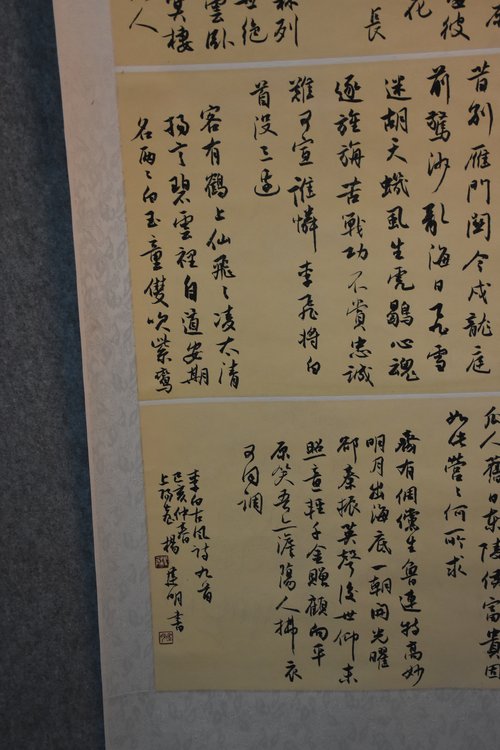 花
長
森列
世絕
雲臥
冥棲
人
昔別雁門關今戍龍庭
前驚沙亂海日飛雪
迷胡天蟣虱生虎鶡心魂
逐旌旃苦戰功不賞忠誠
難可宣誰憐李飛將白
首沒三邊
客有鶴上仙飛々凌太清
揚言碧雲裡自道安期
名兩々白玉童雙吹紫鸞
瓜人舊日東陵侯富貴固
如此營々何所求
齊有倜儻生魯連特高妙
明月出海底一朝開光曜
卻秦振英聲後世仰末
照意輕千金贈顧向平
原笑吾亦澹蕩人拂衣
可同調
李白古風詩九首
己亥仲春
楊 明書